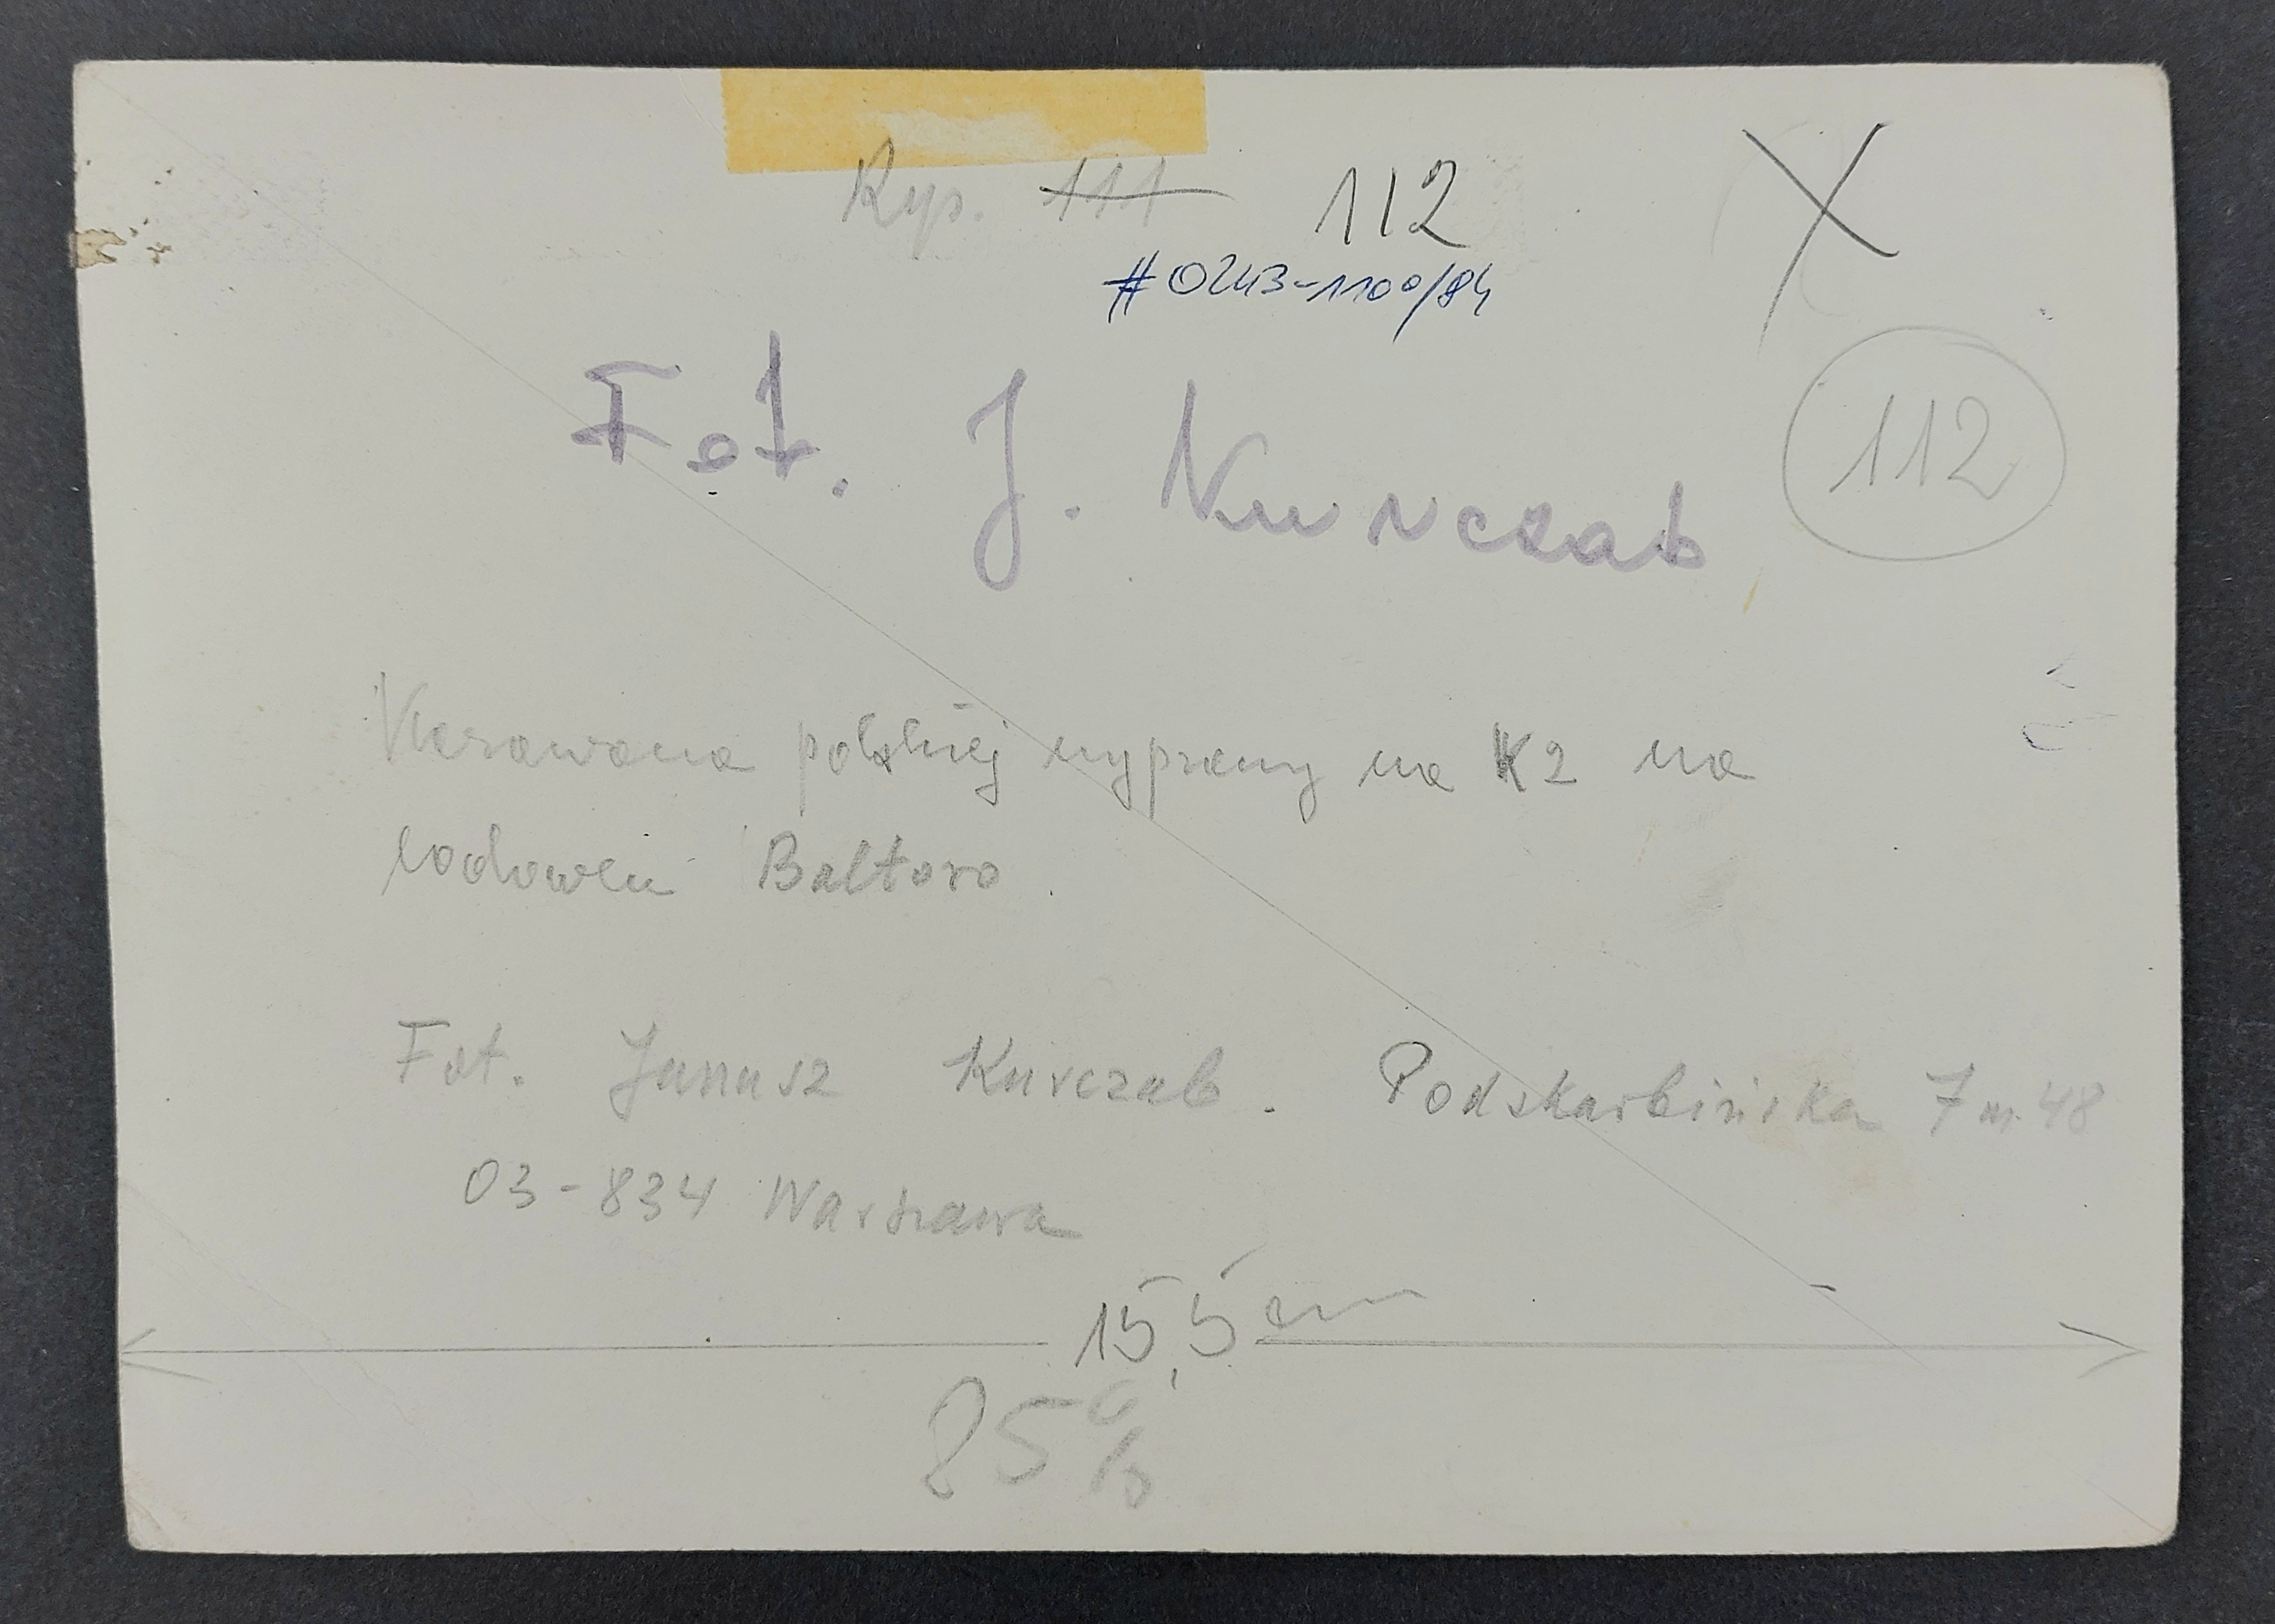 Ryp. 111 112
#0243-1100/84
Fot. J. Kurczab
112
Karawana polskiej wyprawy na K2 na
lodowcu Baltoro.
Fot. Janusz Kurczab. Podskarbińska 7 m. 48
03-834 Warszawa
15,5 cm
85%